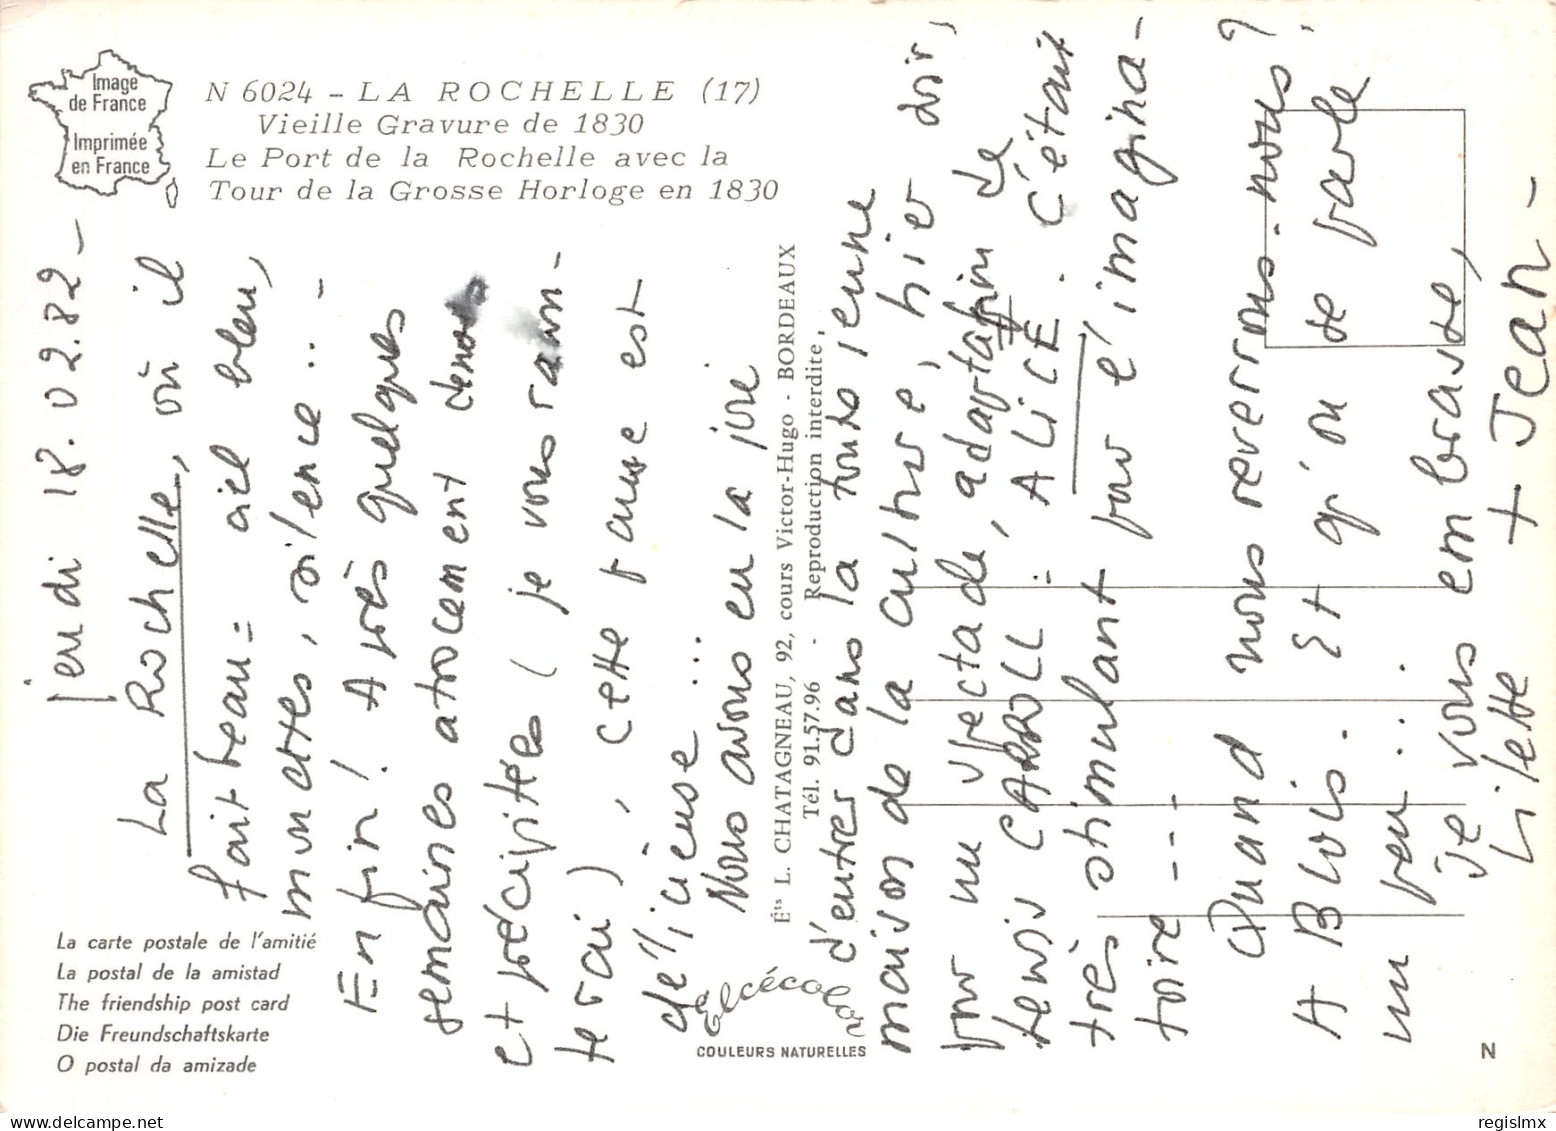 Image
de France
Imprimée
en France
N 6024 - LA ROCHELLE (17)
Vieille Gravure de 1830
Le Port de la Rochelle avec la
Tour de la Grosse Horloge en 1830
jeudi 18.02.82 -
La Rochelle, où il
fait beau = ciel bleu,
mouettes, silence... -
Enfin! Après quelques
semaines atrocement denses
et précipitées (je vous racon-
terai), cette pause est
délicieuse...
Nous avons eu la joie
d'entrer dans la toute jeune
maison de la culture, hier soir,
pour un spectacle, adaptation de
Lewis CARROLL : ALICE. C'était
très stimulant pour l'imagina-
toire ---
Quand nous reverrons-nous ?
A Blois. Et qu'on se parle
un peu...
Je vous embrasse,
Lilette + Jean -
Éts L. CHATAGNEAU, 92, cours Victor-Hugo - BORDEAUX
Tél. 91.57.96 - Reproduction interdite,
La carte postale de l'amitié
La postal de la amistad
The friendship post card
Die Freundschaftskarte
O postal da amizade
Elcécolor
COULEURS NATURELLES
N
regislmx